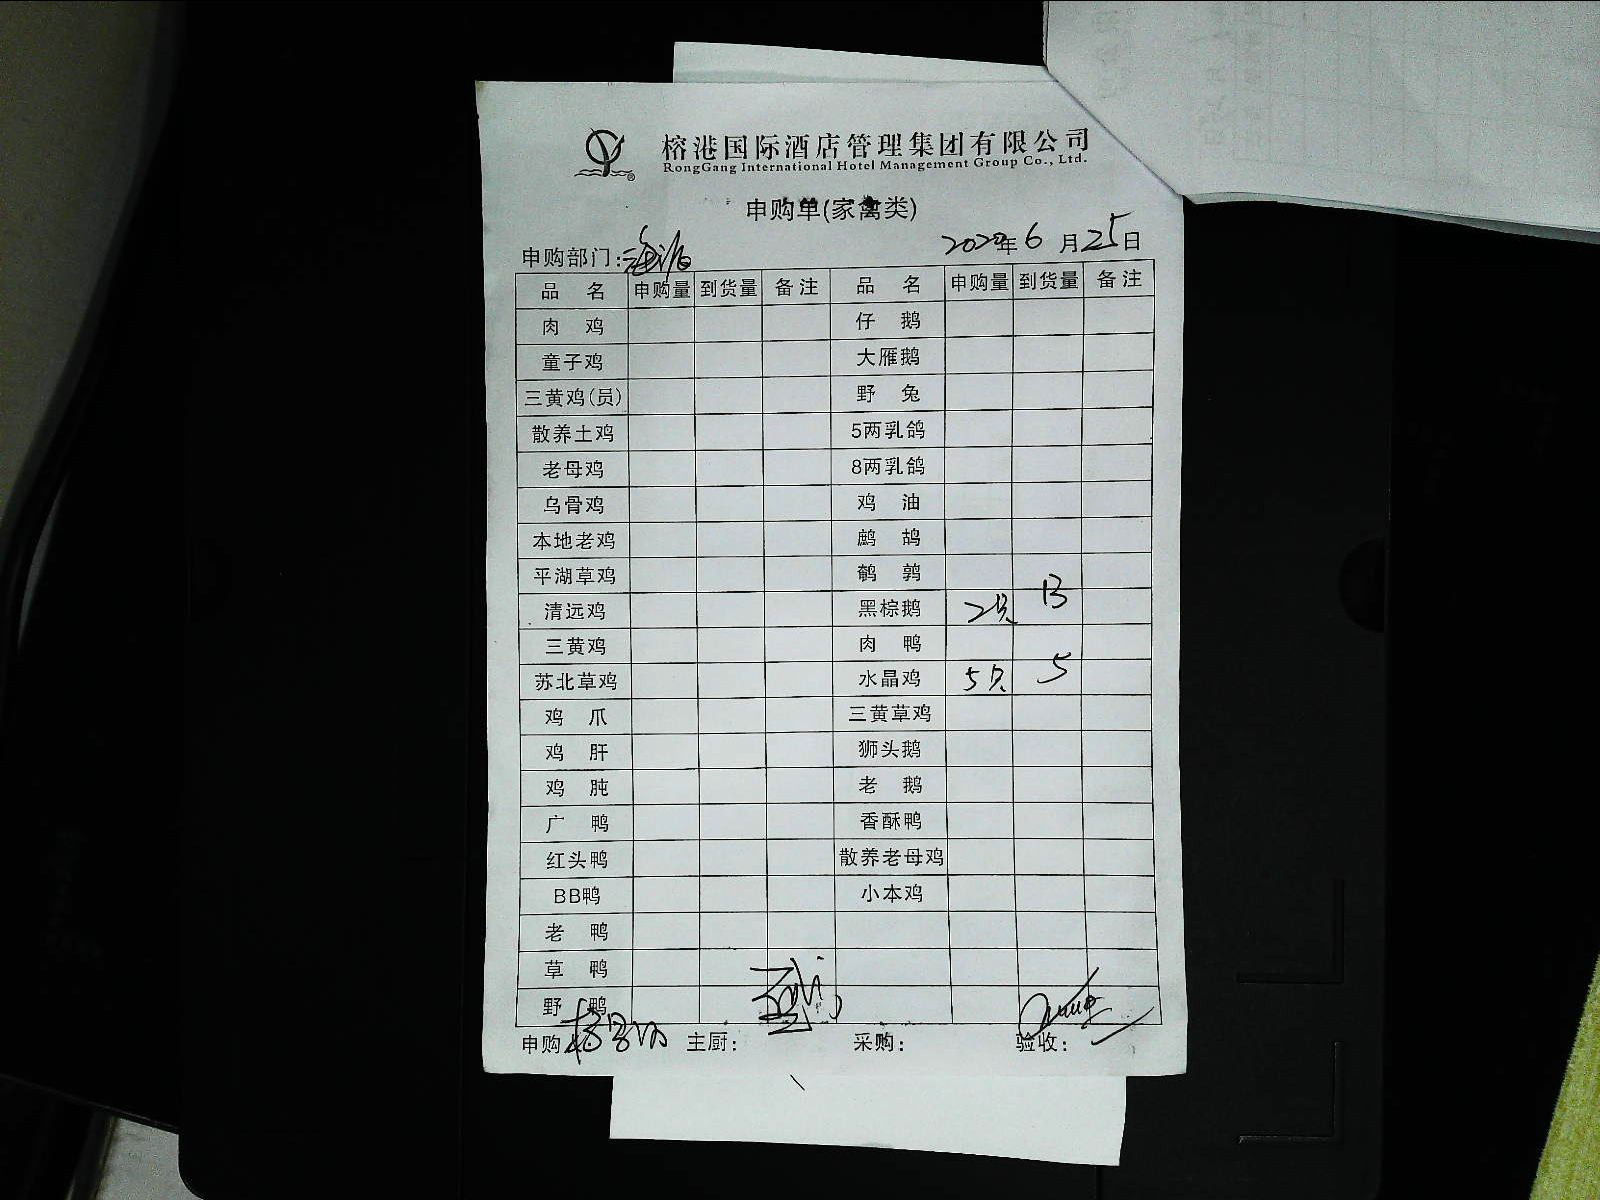 榕港国际酒店管理集团有限公司
RongGang International Hotel Management Group Co., Ltd.
申购单(家禽类)
申购部门: 2020年6月25日
品名 申购量 到货量 备注 品名 申购量 到货量 备注
肉鸡 仔鹅
童子鸡 大雁鹅
三黄鸡(员) 野兔
散养土鸡 5两乳鸽
老母鸡 8两乳鸽
乌骨鸡 鸡油
本地老鸡 鹧鸪
平湖草鸡 鹌鹑
清远鸡 黑棕鹅 2只 13
三黄鸡 肉鸭
苏北草鸡 水晶鸡 5只 5
鸡爪 三黄草鸡
鸡肝 狮头鹅
鸡肫 老鹅
广鸭 香酥鸭
红头鸭 散养老母鸡
BB鸭 小本鸡
老鸭
草鸭
野鸭
申购 主厨: 采购: 验收: